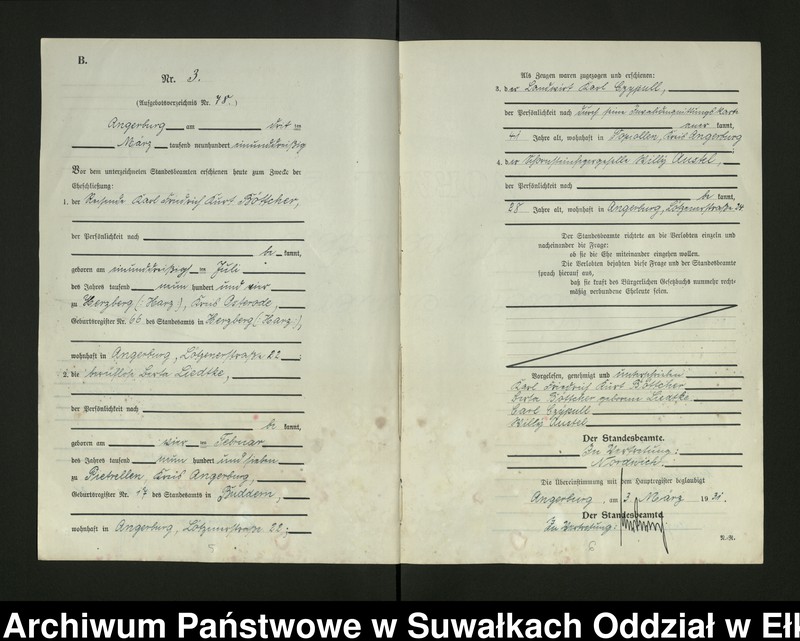 B.
Nr. 3.
(Aufgebotsverzeichnis Nr. 48.)
Angerburg am drit en
März tausend neunhundert einunddreißig
Vor dem unterzeichneten Standesbeamten erschienen heute zum Zwecke der
Eheschließung:
1. der Reisende Karl Friedrich Kurt Böttcher,
der Persönlichkeit nach
be kannt,
geboren am einunddreißigst en Juli
des Jahres tausend neun hundert und vier
zu Herzberg (Harz), Kreis Osterode,
Geburtsregister Nr. 66 des Standesamts in Herzberg (Harz),
wohnhaft in Angerburg, Lötzenerstraße 22;
2. die berufslose Herta Liedtke,
der Persönlichkeit nach
be kannt,
geboren am vier en Februar
des Jahres tausend neun hundert und sieben
zu Pietrellen, Kreis Angerburg,
Geburtsregister Nr. 17 des Standesamts in Buddern,
wohnhaft in Angerburg, Lötzenerstraße 22;
Als Zeugen waren zugezogen und erschienen:
3. der Landwirt Karl Czypull,
der Persönlichkeit nach durch seine
aner kannt,
41 Jahre alt, wohnhaft in Kreis Angerburg
4. der Schornsteinfegergeselle Willy Austel,
der Persönlichkeit nach
be kannt,
28 Jahre alt, wohnhaft in Angerburg, Lötzenerstraße
Der Standesbeamte richtete an die Verlobten einzeln und
nacheinander die Frage:
ob sie die Ehe miteinander eingehen wollen.
Die Verlobten bejahten diese Frage und der Standesbeamte
sprach hierauf aus,
daß sie kraft des Bürgerlichen Gesetzbuchs nunmehr recht-
mäßig verbundene Eheleute seien.
Vorgelesen, genehmigt und unterschrieben
Karl Friedrich Kurt Böttcher
Herta Böttcher geborene Liedtke
Carl Czypull
Willy Austel
Der Standesbeamte.
In Vertretung:
Nordwich.
Die Übereinstimmung mit dem Hauptregister beglaubigt
Angerburg, am 3. März 1931.
Der Standesbeamte.
In Vertretung:
N.-R.
Archiwum Państwowe w Suwałkach Oddział w Eł